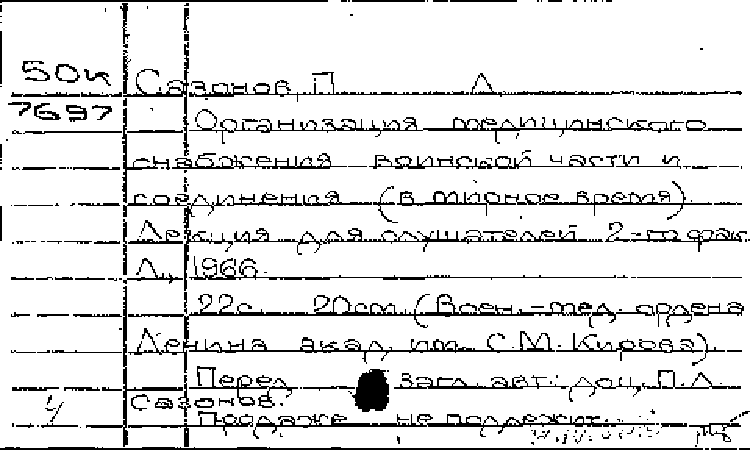 50к Сазонов, П. Л.
7697 Организация медицинского
снабжения воинской части и
соединения (в мирное время).
Лекция для слушателей 2-го фак.
Л., 1966.
22с. 20см. (Воен.-мед. ордена
Ленина акад. им. С.М. Кирова).
Перед загл. авт.: доц. П.Л.
Сазонов.
Продаже не подлежит.